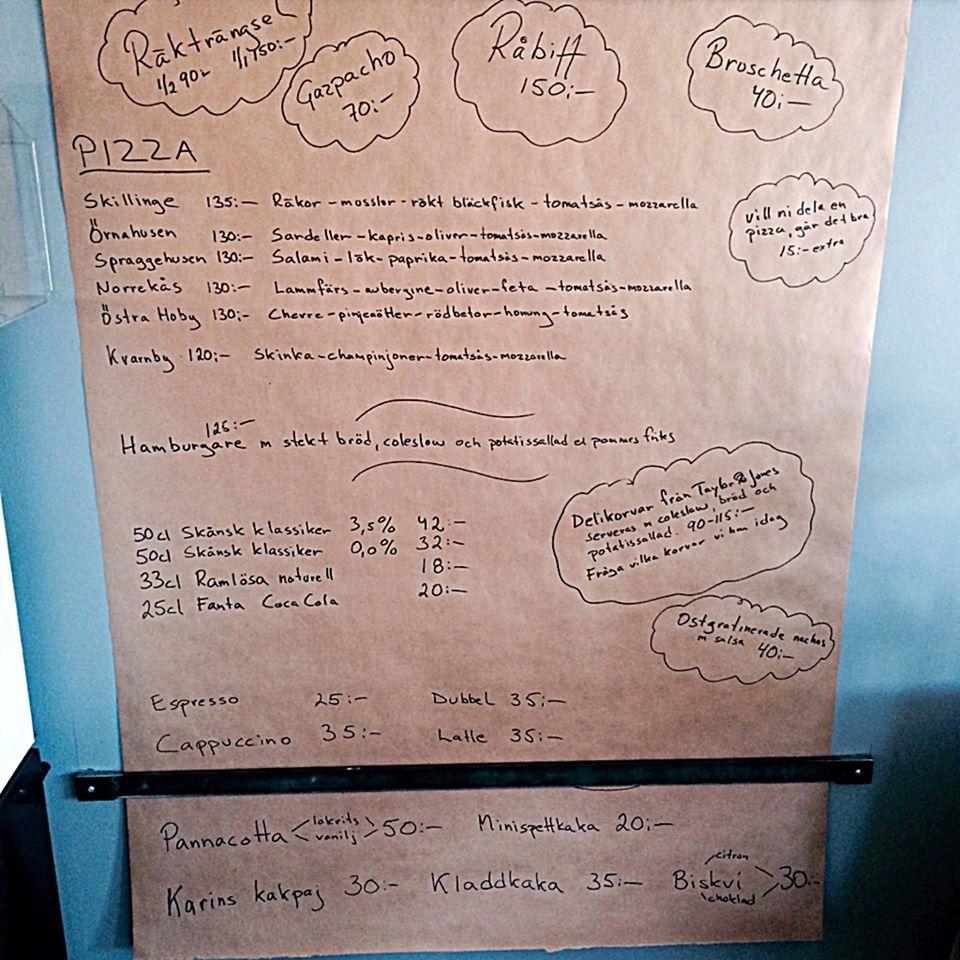 Räkträngsel
1/2 90:- 1/1 150:-
Gazpacho
70:-
Råbiff
150:-
Broschetta
40:-
PIZZA
Skillinge 135:- Räkor - musslor - rökt bläckfisk - tomatsås - mozzarella
Örnahusen 130:- Sardeller - kapris - oliver - tomatsås - mozzarella
Spraggehusen 130:- Salami - lök - paprika - tomatsås - mozzarella
Norrekås 130:- Lammfärs - aubergine - oliver - feta - tomatsås - mozzarella
Östra Hoby 130:- Chevre - pinjenötter - rödbetor - honung - tomatsås
Kvarnby 120:- Skinka - champinjoner - tomatsås - mozzarella
vill ni dela en
pizza, går det bra
15:- extra
125:-
Hamburgare m stekt bröd, coleslaw och potatissallad el pommes frites
Delikorvar från Taylor & Jones
serveras m coleslaw, bröd och
potatissallad. 90-115:-
Fråga vilka korvar vi har idag
50cl Skånsk klassiker 3,5% 42:-
50cl Skånsk klassiker 0,0% 32:-
33cl Ramlösa naturell 18:-
25cl Fanta Coca Cola 20:-
Ostgratinerade nachos
m salsa 40:-
Espresso 25:- Dubbel 35:-
Cappuccino 35:- Latte 35:-
Pannacotta lakrits vanilj 50:- Minispettkaka 20:-
Karins kakpaj 30:- Kladdkaka 35:- Biskvi citron choklad 30:-